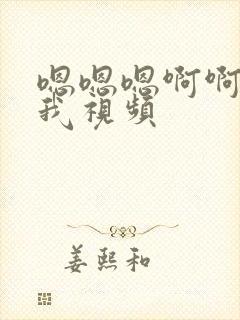 嗯嗯嗯啊啊
我視頻
姜熙和